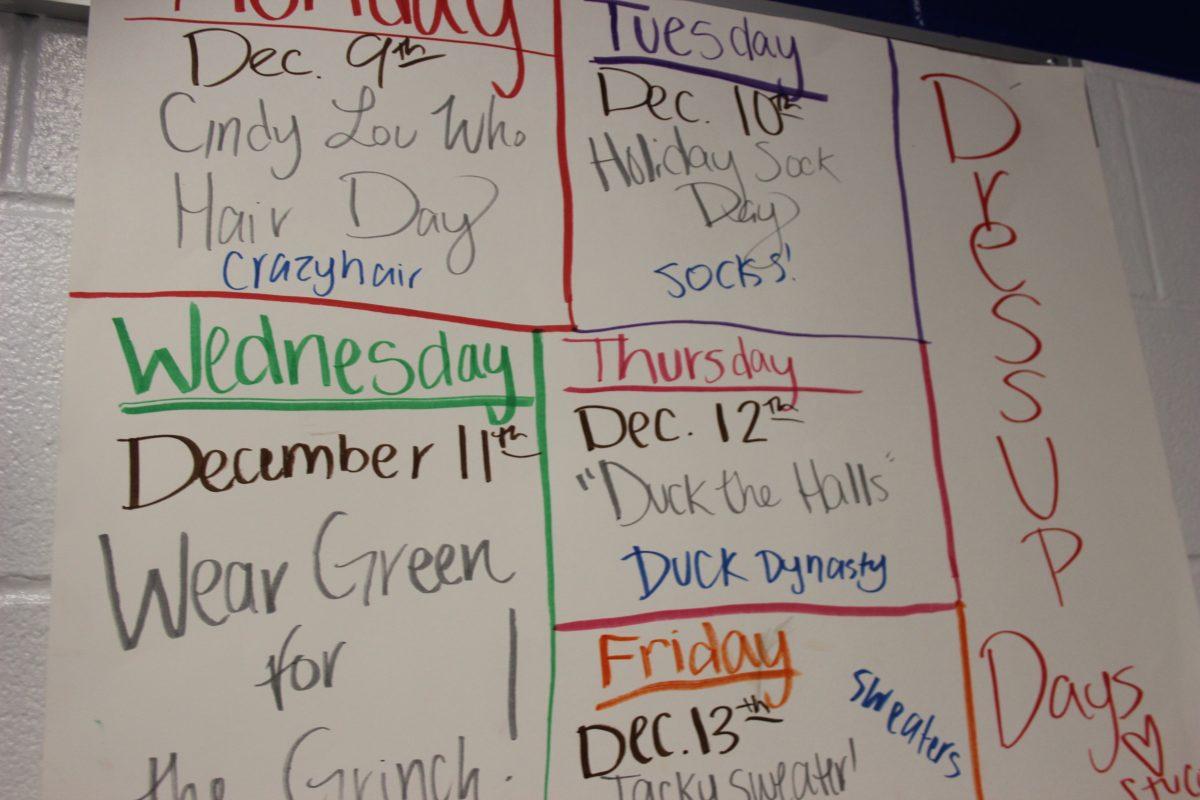 Monday
Dec. 9th
Cindy Lou Who
Hair Day
crazyhair
Tuesday
Dec. 10th
Holiday Sock
Day
socks!
Wednesday
December 11th
Wear Green
for
the Grinch!
Thursday
Dec. 12th
"Duck the Halls"
DUCK Dynasty
Friday
Dec. 13th
Tacky sweater!
sweaters
DresSUP
Days